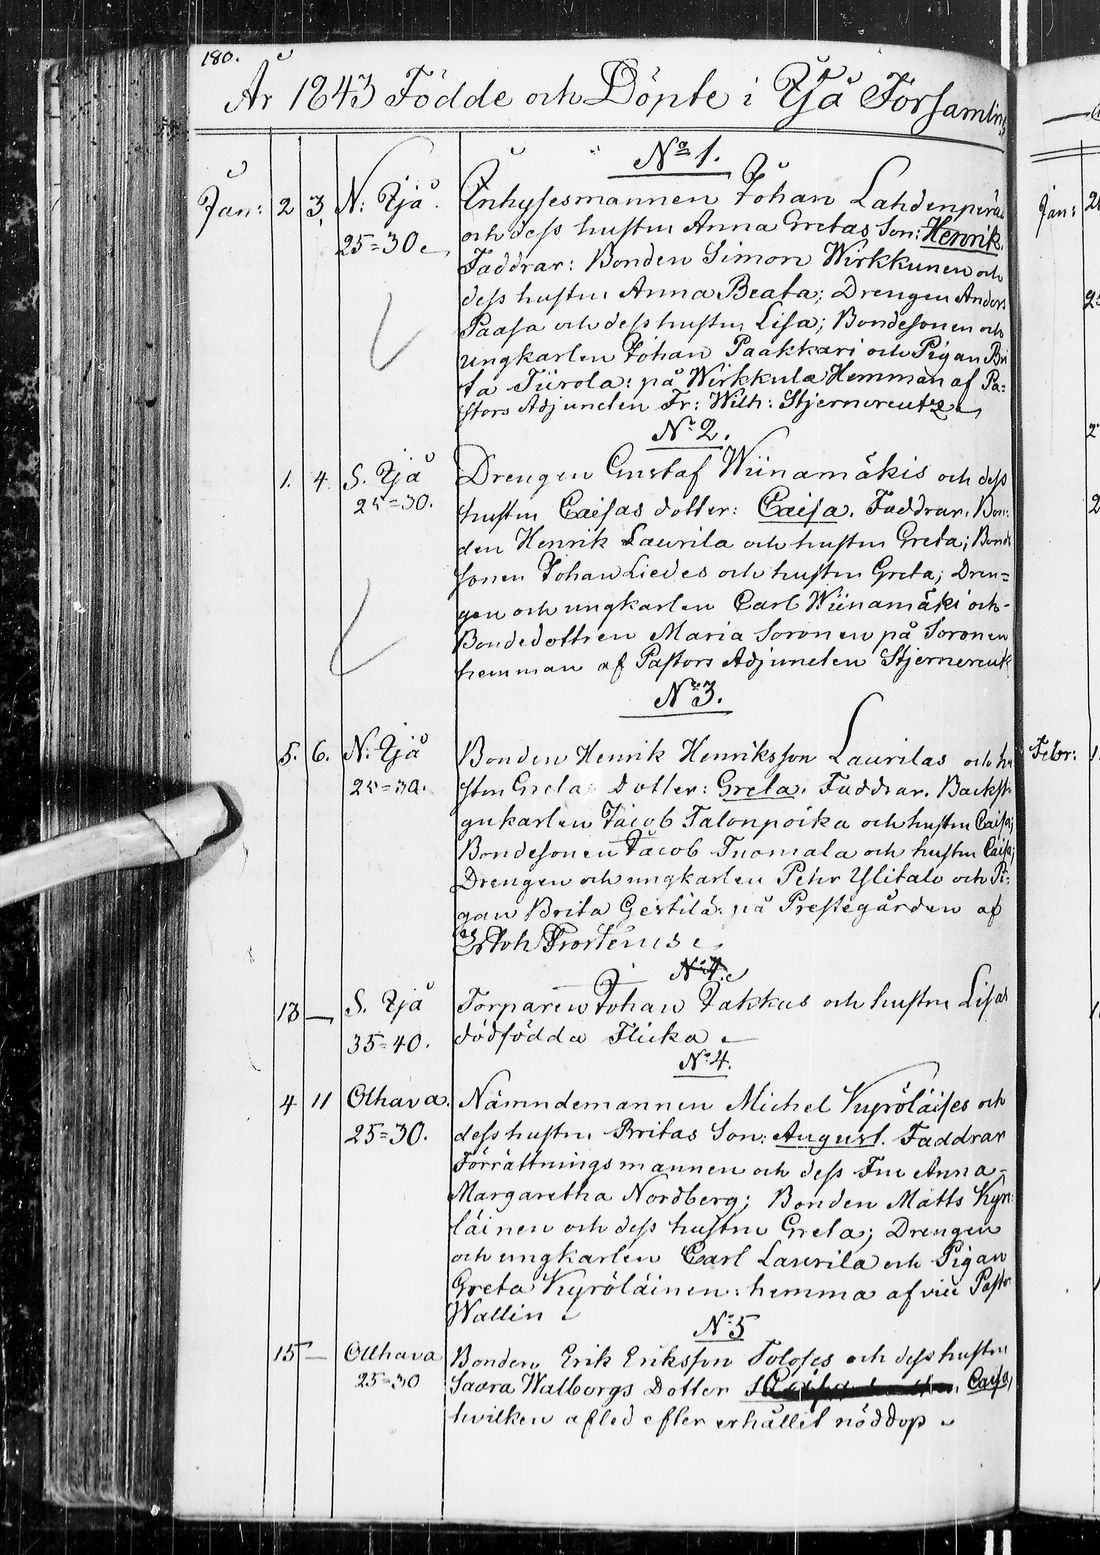 180.
År 1843 Födde och Döpte i Ijå Församling
No 1.
Jan: 2 3 N: Ijå. Inhysesmannen Johan Lahdenperäs
25=30 och dess hustru Anna Gretas Son: Henrik.
Faddrar: Bonden Simon Wirkkunen och
dess hustru Anna Beata; Drengen Anders
Paasa och dess hustru Lisa; Bondesonen och
ungkarlen Johan Paakkari och Pigan Bri
ta Tiirola: på Wirkkula Hemman af Pa:
stors Adjuncten Fr: Wilh: Stjerncreutz
No 2.
1. 4. S. Ijå Drengen Gustaf Wiinamäkis och dess
25=30. hustru Caisas dotter: Caisa. Faddrar. Bon:
den Henrik Laurila och hustru Greta; Bonde
sonen Johan Liedes och hustru Greta; Dren=
gen och ungkarlen Carl Wiinamäki och
Bondedottren Maria Soronen på Soronen
hemman af Pastors Adjuncten Stjerncreutz
No 3.
5. 6. N: Ijå Bonden Henrik Henriksson Laurilas och hu
25=30. strun Gretas Dotter: Greta. Faddrar. Backst
gukarlen Jacob Talonpoika och hustru Caisa;
Bondesonen Jacob Tuomala och hustru Caisa;
Drengen och ungkarlen Pehr Ylitalo och Pi:
gan Brita Gertilä: på Prestegården af
Prosterus
No 4.
13 — S. Ijå Torparen Johan Jakkus och hustru Lisas
35=40. dödfödda Flicka
No 4.
4 11 Olhava. Nämndemannen Michel Kyröläises och
25=30. dess hustru Britas Son: August. Faddrar
Förrättningsmannen och dess Fru Anna
Margaretha Nordberg; Bonden Matts Kyrö
läinen och dess hustru Greta; Drengen
och ungkarlen Carl Laurila och Pigan
Greta Kyröläinen: hemma af vice Pastor
Wallin
No 5
15 — Ollhava Bonden Erik Eriksson Toloses och dess hustru
25=30 Saara Walborgs Dotter Caisa,
hvilken afled efter erhållet nöddop
Jan:
Febr: